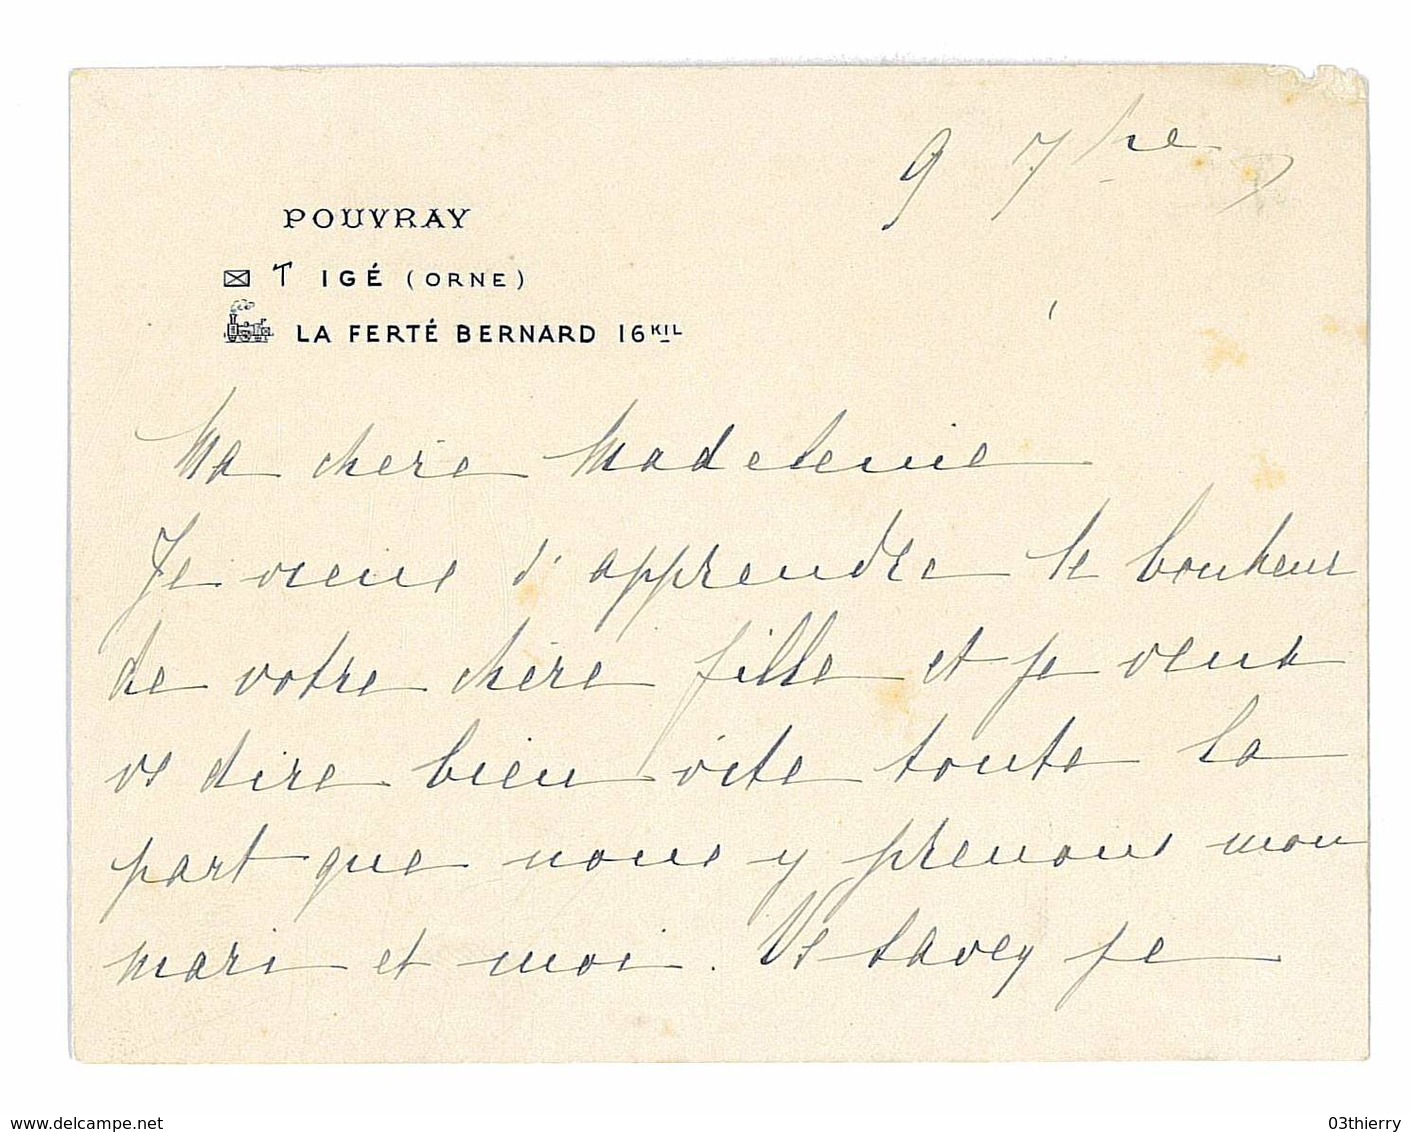 9 7bre
POUVRAY
T IGÉ (ORNE)
LA FERTÉ BERNARD 16 KIL
Ma chère Madeleine
Je viens d'apprendre le bonheur
de votre chère fille et je veux
vs dire bien vite toute la
part que nous y prenons mon
mari et moi. Vs savez je
www.delcampe.net
03thierry